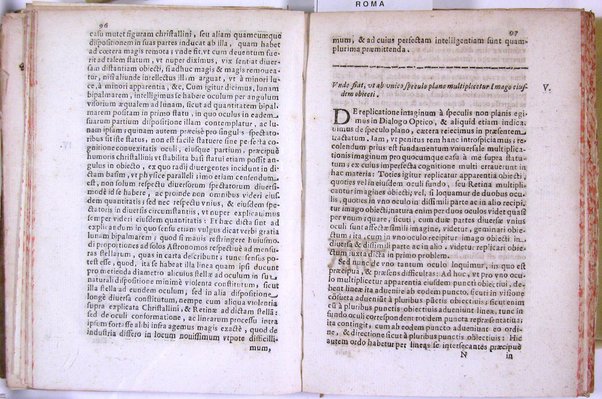 ROMA
96
casu mutet figuram christallini, seu aliam quamcumque
dispositionem in suas partes inducat ab illa, quam habet
ad cœtera magis remota; vnde fit, vt cum deueniat vsque
fieri ad talem statum, vt nuper diximus, vix sentiat diuer-
sam distantiam obiecti, si adhuc magis & magis remouea-
tur, nisi aliunde intellectus illam arguat, vt à minori lu-
ce, à minori apparentia, &c, Cum igitur dicimus, lunam
bipalmarem, intelligimus se habere oculum per angulum
visorium æqualem ad lunam, sicut ad quantitatem bipal-
marem positam in tanto situ, in quo oculus in eadem
suarum partium dispositione illam contemplaretur, ac lu-
nam ipsam; quinam autem præcise pro singulis spectato-
ribus sit iste situs, non est facile statuere sine perfecta co-
gnitione dispositionis oculi, eiusque partium, præcipuè
humoris christallini vt stabilita basi statui etiam possit an-
gulus in obiecto, ex quo radij diuergentes incidunt in di-
ctam basim, vt physice paralleli; imo etiam censendum
est, non solum respectu diuersorum spectatorum diuersi-
modè id se habere, ac proinde non omnibus videri eiusdem
quantitatis sed nec respectu vnius, & eiusdem spe-
ctatoris in diuersis circunstantijs, vt nuper explicauimus
semper videri eiusdem quantitatis: Et hæc dicta sint ad
explicandum in quo sensu etiam vulgus dicat verbi gratia
lunam bipalmarem; quod si mauis restringere huiusmo-
di propositiones ad solos Astronomos respectiuè ad mensu-
ras stellarum, quas in carta describunt; tunc sensus po-
test esse, quod ita se habeat illa linea quam ipsi ducunt
pro metienda diametro alicuius stellæ ad oculum in sua
naturali dispositione minimè violenta constitutum, sicut
illa stella ad eundem oculum, sed in alia dispositione
longè diuersa constitutum, nempe cum aliqua violentia
supra explicata Christallini, & Retinæ ad dictam stellam:
sed de oculi conformatione, ac linearum processu intra
ipsum fortasse alibi infra agemus magis exactè, quod de
industria differo in locum nouissimum vtpote difficilli-
mum,
97
mum, & ad cuius perfectam intelligentiam sunt quam-
plurima præmittenda.
Vnde fiat, vt ab vnico speculo plane multiplicetur Imago eius-
dem obiecti, V.
DE replicatione imaginum à speculis non planis egi-
mus in Dialogo Optico, & aliquid etiam indica-
uimus de speculo plano, cætera reiecimus in præsentem
tractatum; Iam, vt penitus rem hanc introspiciamus; re-
colendum prius est fundamentum vniuersale multiplica-
tionis imaginum pro quocumque casu à me supra statu-
tum; ex cuius imperfecta cognitione multi errauerunt in
hac materia: Toties igitur replicatur apparentia obiecti,
quoties vel in eiusdem oculi fundo, seu Retina multipli-
catur dimissa imago obiecti, vel, si loquamur de duobus ocu-
lis, quoties in vno oculo in dissimili parte ac in alio recipi-
tur imago obiecti, natura enim per duos oculos videt quasi
per vnum integrum; sicuti, cum duæ partes diuersæ vnius
oculi sunt affectæ simili imagine, videtur, geminari obie-
ctum ita, cum in vno oculo recipitur imago obiecti in
diuersa & dissimili parte ac in alio; videtur replicari obie-
ctum iuxta dicta in primo problema.
Sed nunc de vno tantum oculo loquimur, in quo est
præcipua, & præsens difficultas: Ad hoc, vt pro vno ocu-
lo multiplicetur apparentia eiusdem puncti obiectiui, de-
bent lineæ ita aduenire ab eodem puncto, sicut in visione
cōsueta adueniūt à pluribus pūctis obiectiuis; cum autem
à pluribus punctis obiectiuis adueniunt lineæ, tunc in
fundo oculi correspondent totidem puncta repræsentatiua;
ita contingit, cum ab eodem puncto adueniunt eo ordi-
ne, & directione sicut à pluribus punctis obiectiuis: Hic
autem ordo habetur per lineas se intersecantes præcipuè
N in